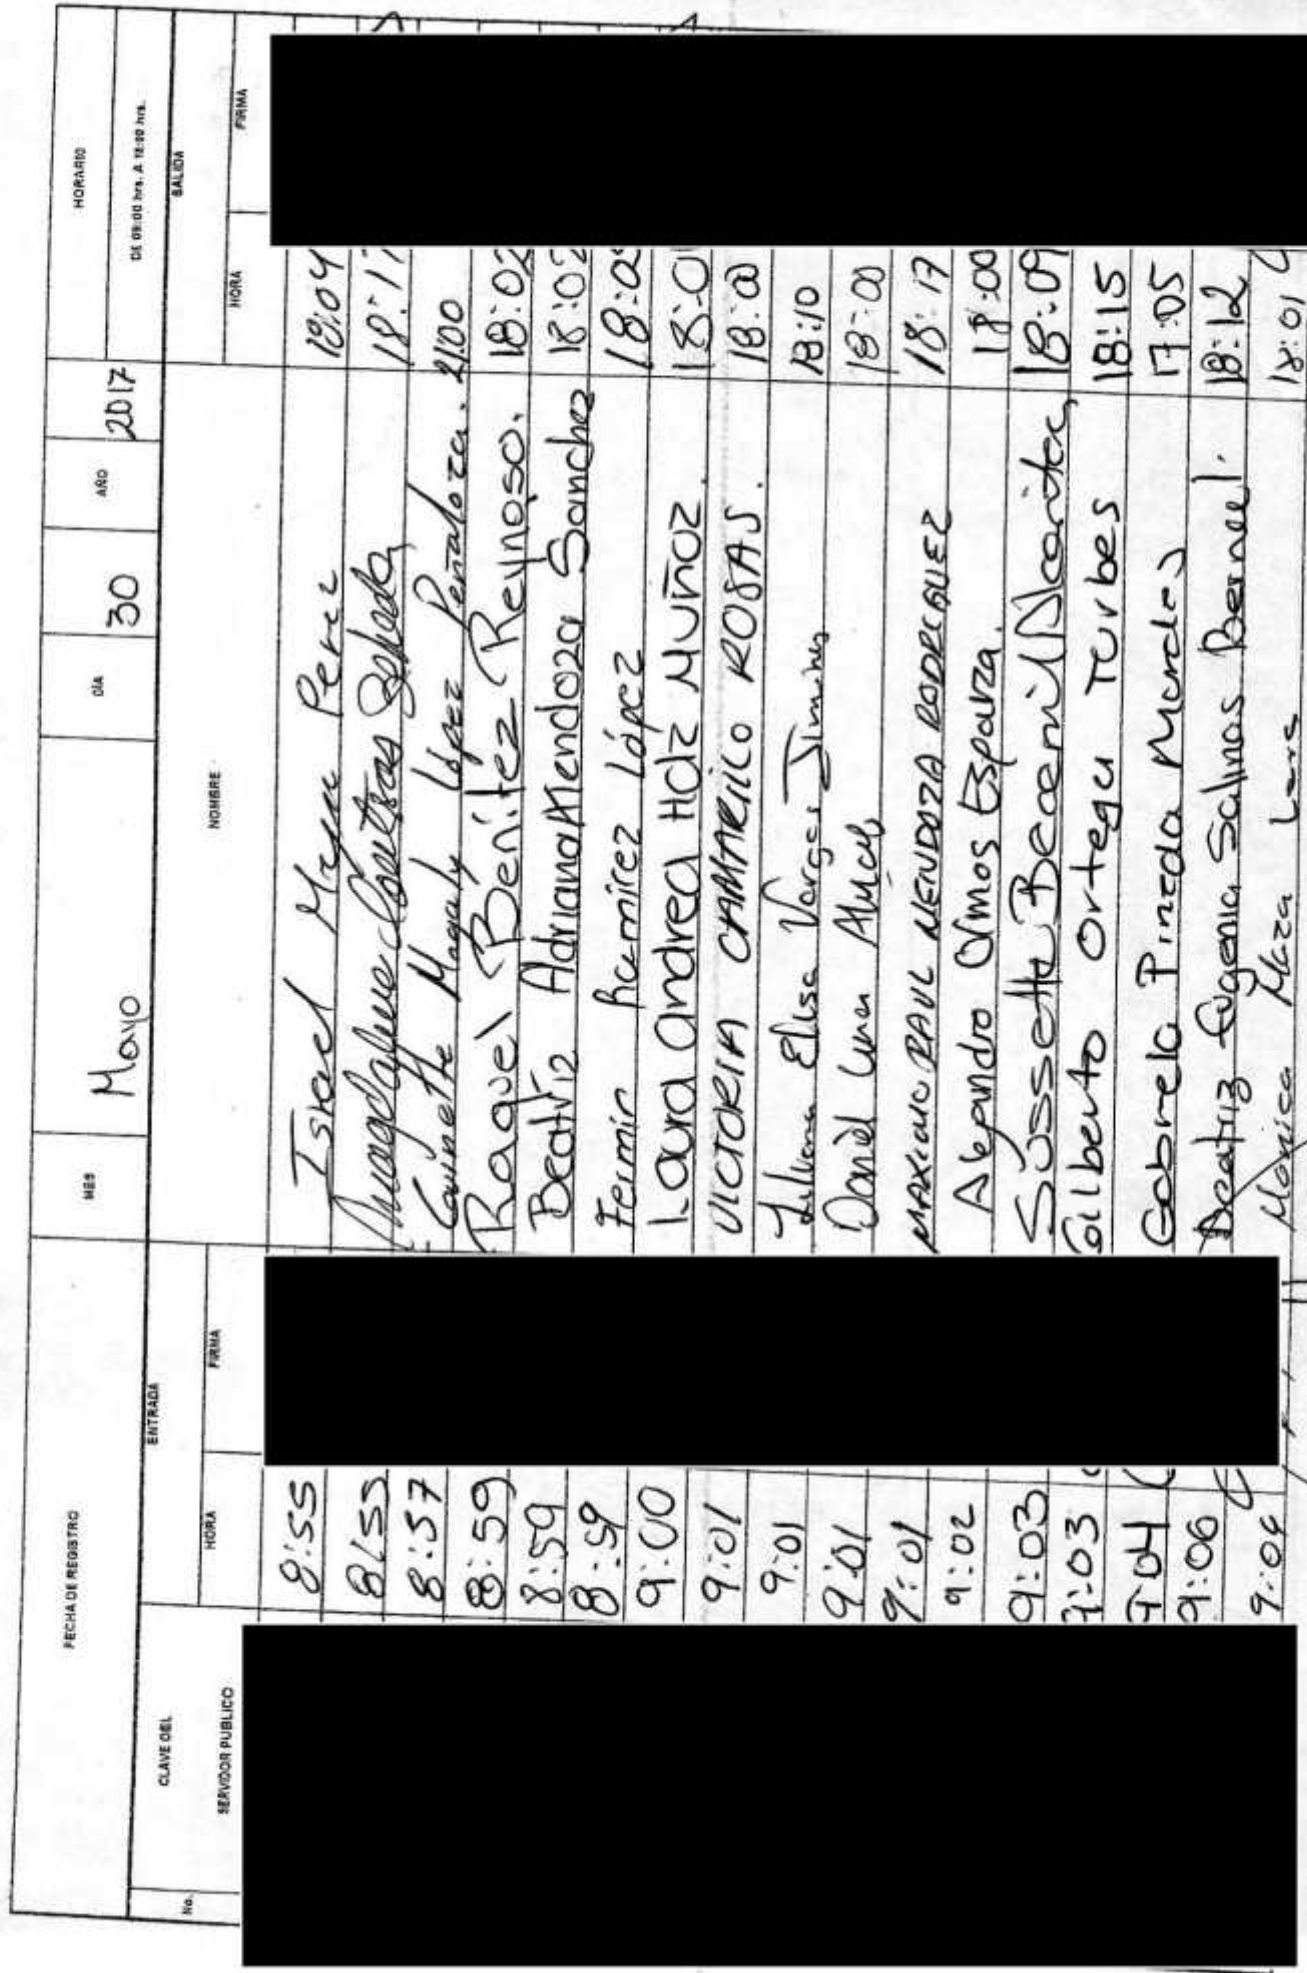 FECHA DE REGISTRO MES Mayo DÍA 30 AÑO 2017 HORARIO
DE 09:00 hrs. A 18:00 hrs.
No. CLAVE DEL SERVIDOR PUBLICO ENTRADA NOMBRE SALIDA
HORA FIRMA HORA FIRMA
8:55 Israel Perez 18:04
8:55 18:17
8:57 Magaly López Peñaloza. 21:00
8:59 Raquel Benítez Reynoso. 18:02
8:59 Beatriz Adriana Mendoza Sanchez 18:02
8:59 Fermin Ramírez López 18:02
9:00 Laura Andrea Hdz Muñoz. 18:01
9:01 VICTORIA CAMARILLO ROSAS. 18:00
9:01 Liliana Elisa Vargas Jiménez 18:10
9:01 Daniel Luna 18:00
9:01 MAXIMO RAUL MENDOZA RODRIGUEZ 18:17
9:02 Alejandro Olmos Esparza. 18:00
9:03 Sussette Becerril 18:09
9:03 Gilberto Ortega Turbes 18:15
9:04 Gabriela Pineda Morales 17:05
9:06 Beatriz Eugenia Salinas Bernal. 18:12
9:04 Monica Maza Lara 18:01